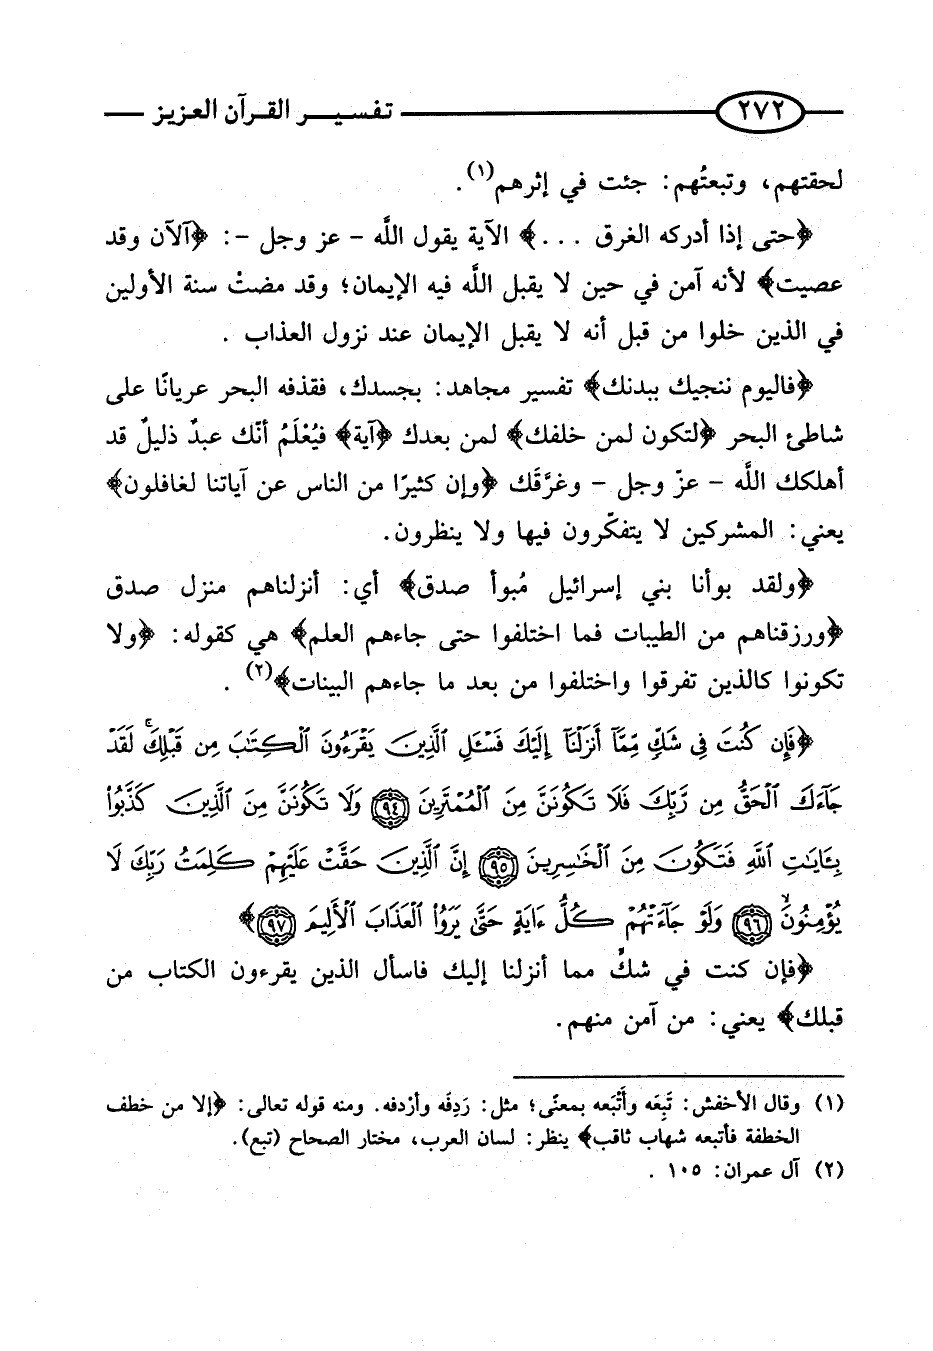 ٢٧٢ تفسير القرآن العزيز
لحقتهم، وتبعتُهم: جئت في إثرهم(١).
﴿حتى إذا أدركه الغرق ...﴾ الآية يقول اللَّه - عز وجل -: ﴿آلآن وقد
عصيت﴾ لأنه آمن في حين لا يقبل اللَّه فيه الإيمان؛ وقد مضتْ سنة الأولين
في الذين خلوا من قبل أنه لا يقبل الإيمان عند نزول العذاب .
﴿فاليوم ننجيك ببدنك﴾ تفسير مجاهد: بجسدك، فقذفه البحر عريانًا على
شاطئ البحر ﴿لتكون لمن خلفك﴾ لمن بعدك ﴿آية﴾ فيُعْلَمُ أنّك عبدٌ ذليلٌ قد
أهلكك اللَّه - عزّ وجل - وغرَّقَك ﴿وإن كثيرًا من الناس عن آياتنا لغافلون﴾
يعني: المشركين لا يتفكّرون فيها ولا ينظرون.
﴿ولقد بوأنا بني إسرائيل مُبوأ صدق﴾ أي: أنزلناهم منزل صدق
﴿ورزقناهم من الطيبات فما اختلفوا حتى جاءهم العلم﴾ هي كقوله: ﴿ولا
تكونوا كالذين تفرقوا واختلفوا من بعد ما جاءهم البينات﴾(٢) .
﴿فَإِن كُنتَ فِي شَكٍّ مِّمَّآ أَنزَلْنَآ إِلَيْكَ فَسْـَٔلِ ٱلَّذِينَ يَقْرَءُونَ ٱلْكِتَٰبَ مِن قَبْلِكَۚ لَقَدْ
جَآءَكَ ٱلْحَقُّ مِن رَّبِّكَ فَلَا تَكُونَنَّ مِنَ ٱلْمُمْتَرِينَ ٩٤ وَلَا تَكُونَنَّ مِنَ ٱلَّذِينَ كَذَّبُوا۟
بِـَٔايَٰتِ ٱللَّهِ فَتَكُونَ مِنَ ٱلْخَٰسِرِينَ ٩٥ إِنَّ ٱلَّذِينَ حَقَّتْ عَلَيْهِمْ كَلِمَتُ رَبِّكَ لَا
يُؤْمِنُونَۙ ٩٦ وَلَوْ جَآءَتْهُمْ كُلُّ ءَايَةٍ حَتَّىٰ يَرَوُا۟ ٱلْعَذَابَ ٱلْأَلِيمَ ٩٧﴾
﴿فإن كنت في شكٍّ مما أنزلنا إليك فاسأل الذين يقرءون الكتاب من
قبلك﴾ يعني: من آمن منهم.
(١) وقال الأخفش: تَبِعَه وأَتْبَعه بمعنًى؛ مثل: رَدِفَه وأرْدفه. ومنه قوله تعالى: ﴿إلا من خطف
الخطفة فأتبعه شهاب ثاقب﴾ ينظر: لسان العرب، مختار الصحاح (تبع).
(٢) آل عمران: ١٠٥ .